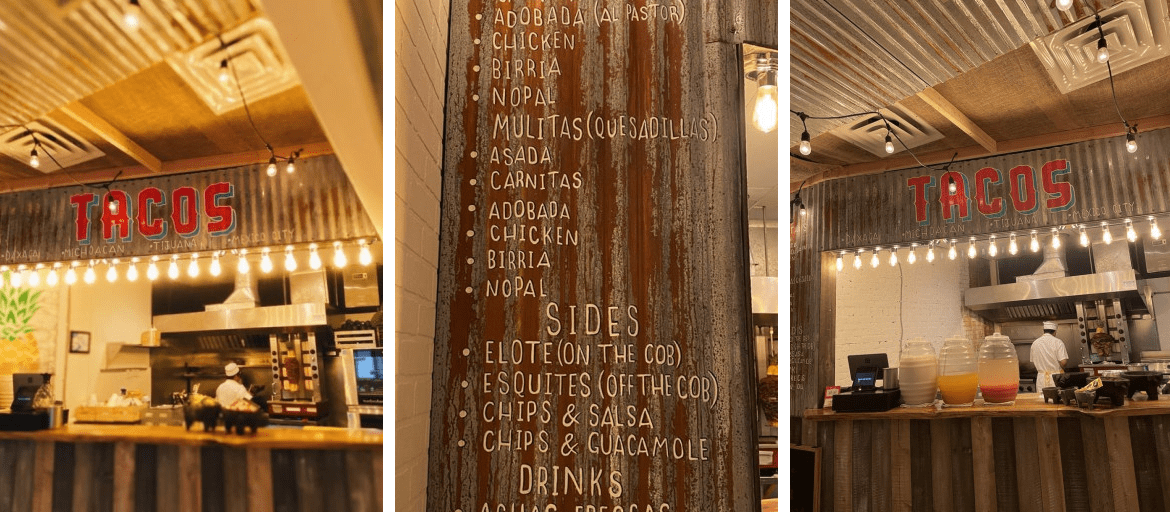 TACOS
•OAXACA
•MICHOACAN
•TIJUANA
•MEXICO CITY
• ADOBADA (AL PASTOR)
• CHICKEN
• BIRRIA
• NOPAL
MULITAS (QUESADILLAS)
• ASADA
• CARNITAS
• ADOBADA
• CHICKEN
• BIRRIA
• NOPAL
SIDES
• ELOTE (ON THE COB)
• ESQUITES (OFF THE COB)
• CHIPS & SALSA
• CHIPS & GUACAMOLE
DRINKS
• AGUAS FRESCAS
TACOS
•MICHOACAN
•TIJUANA
•MEXICO CITY